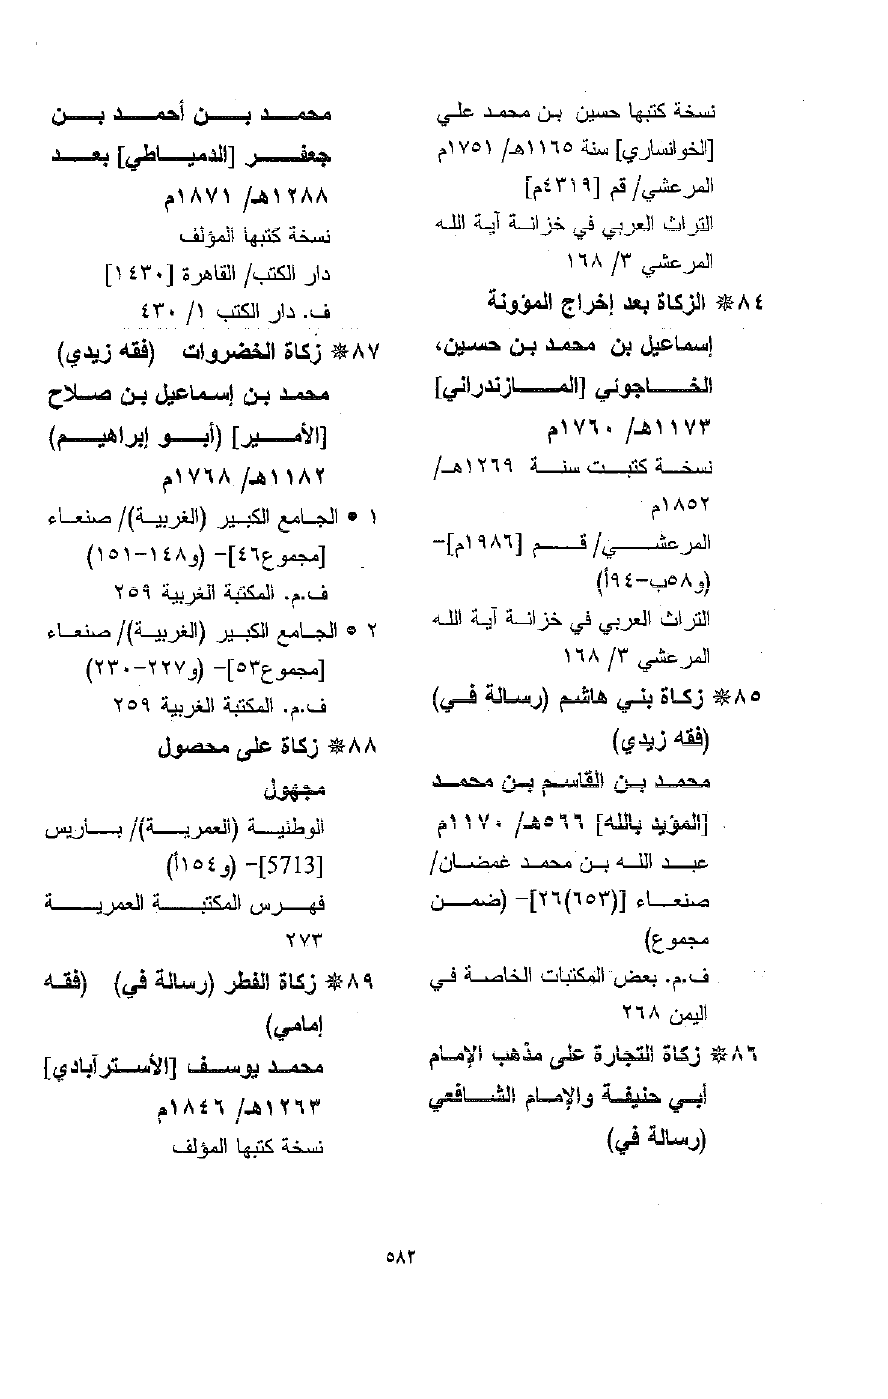 نسخة كتبها حسين بن محمد علي
[الخوانساري] سنة ١١٦٥هـ/ ١٧٥١م
المرعشي/ قم [٤٣١٩م]
التراث العربي في خزانة آية الله
المرعشي ٣/ ١٦٨
٨٤* الزكاة بعد إخراج المؤونة
إسماعيل بن محمد بن حسين،
الخاجوني [المازندراني]
١١٧٣هـ/ ١٧٦٠م
نسخة كتبت سنة ١٢٦٩هـ/
١٨٥٢م
المرعشي/ قم [١٩٨٦م]-
(و٥٨ب-٩٤أ)
التراث العربي في خزانة آية الله
المرعشي ٣/ ١٦٨
٨٥* زكاة بني هاشم (رسالة في)
(فقه زيدي)
محمد بن القاسم بن محمد
[المؤيد بالله] ٥٦٦هـ/ ١١٧٠م
عبد الله بن محمد غمضان/
صنعاء [(٦٥٣)٢٦]- (ضمن
مجموع)
ف.م. بعض المكتبات الخاصة في
اليمن ٢٦٨
٨٦* زكاة التجارة على مذهب الإمام
أبي حنيفة والإمام الشافعي
(رسالة في)
محمد بن أحمد بن
جعفر [الدمياطي] بعد
١٢٨٨هـ/ ١٨٧١م
نسخة كتبها المؤلف
دار الكتب/ القاهرة [١٤٣٠]
ف. دار الكتب ١/ ٤٣٠
٨٧* زكاة الخضروات (فقه زيدي)
محمد بن إسماعيل بن صلاح
[الأمير] (أبو إبراهيم)
١١٨٢هـ/ ١٧٦٨م
١ • الجامع الكبير (الغربية)/ صنعاء
[مجموع٤٦]- (و١٤٨-١٥١)
ف.م. المكتبة الغربية ٢٥٩
٢ • الجامع الكبير (الغربية)/ صنعاء
[مجموع٥٣]- (و٢٢٧-٢٣٠)
ف.م. المكتبة الغربية ٢٥٩
٨٨* زكاة على محصول
مجهول
الوطنية (العمرية)/ باريس
[5713]- (و١٥٤أ)
فهرس المكتبة العمرية
٢٧٣
٨٩* زكاة الفطر (رسالة في) (فقه
إمامي)
محمد يوسف [الأسترآبادي]
١٢٦٣هـ/ ١٨٤٦م
نسخة كتبها المؤلف
٥٨٢